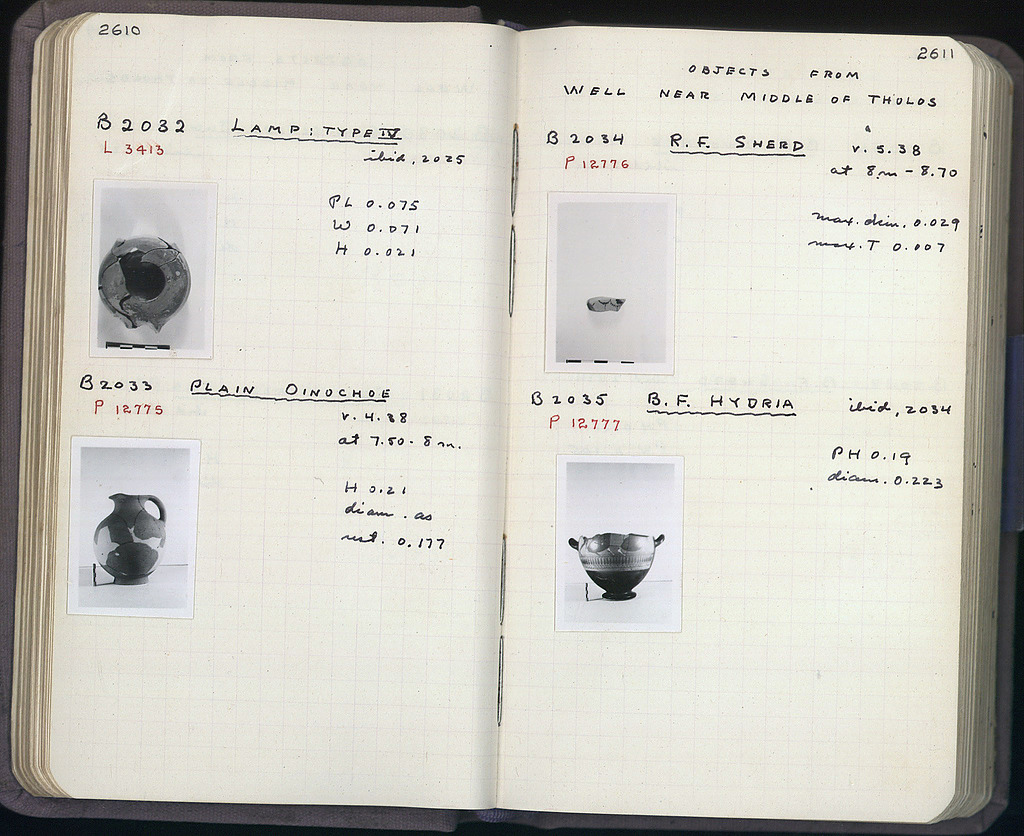 2610
B 2032 LAMP: TYPE IV
L 3413
ibid, 2025
PL 0.075
W 0.071
H 0.021
B 2033 PLAIN OINOCHOE
P 12775
v. 4.38
at 7.50-8 m.
H 0.21
diam. as
rest. 0.177
2611
OBJECTS FROM
WELL NEAR MIDDLE OF THOLOS
B 2034 R.F. SHERD v. 5.38
P 12776
at 8m - 8.70
max. dim. 0.029
max. T 0.007
B 2035 B.F. HYDRIA ibid, 2034
P 12777
PH 0.19
diam. 0.223